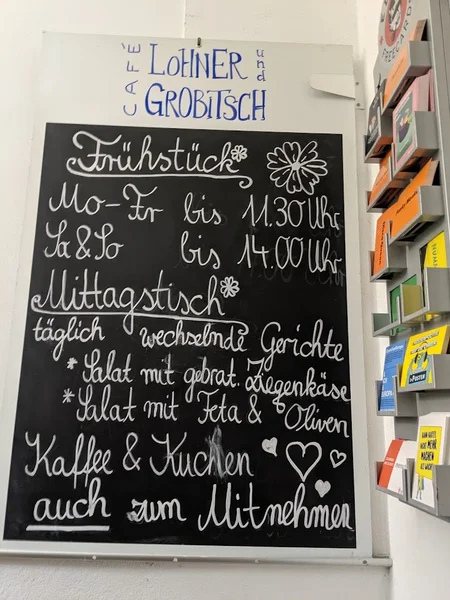 CAFÉ LOHNER und
GROBITSCH
Frühstück
Mo-Fr bis 11.30 Uhr
Sa & So bis 14.00 Uhr
Mittagstisch
täglich wechselnde Gerichte
* Salat mit gebrat. Ziegenkäse
* Salat mit Feta & Oliven
Kaffee & Kuchen
auch zum Mitnehmen